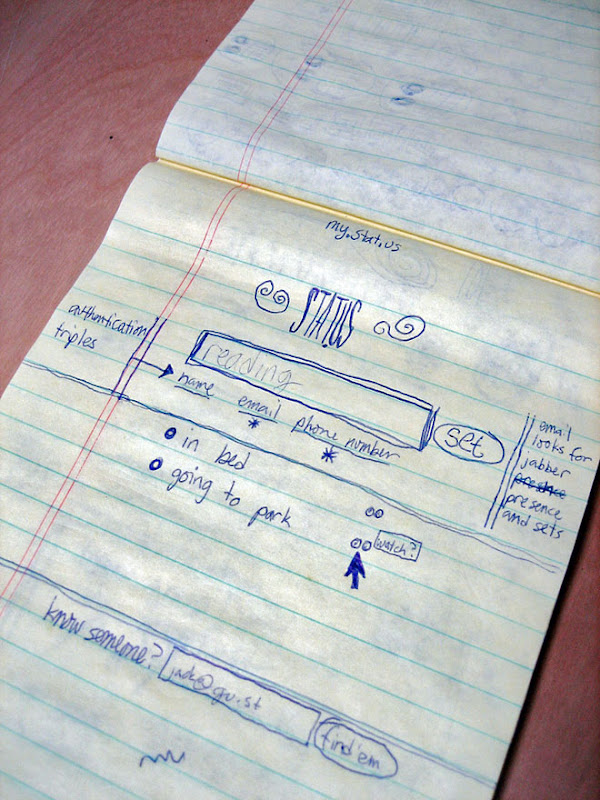 my.stat.us
STAT.US
authentication
triples
reading
name email phone number
* *
set
email
looks for
jabber
presence
presence
and sets
in bed
going to park
watch?
know someone?
jack@gu.st
find'em